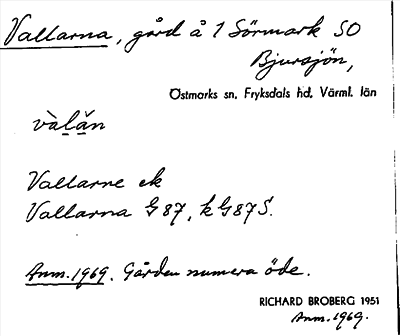 Vallarna, gård å 1 Sörmark SO
Bjursjön,
Östmarks sn. Fryksdals hd. Värml. län
vàḷạ̌n
Vallarne ek
Vallarna G 87, k G 87 S.
Anm. 1969. Gården numera öde.
RICHARD BROBERG 1951
Anm. 1969.